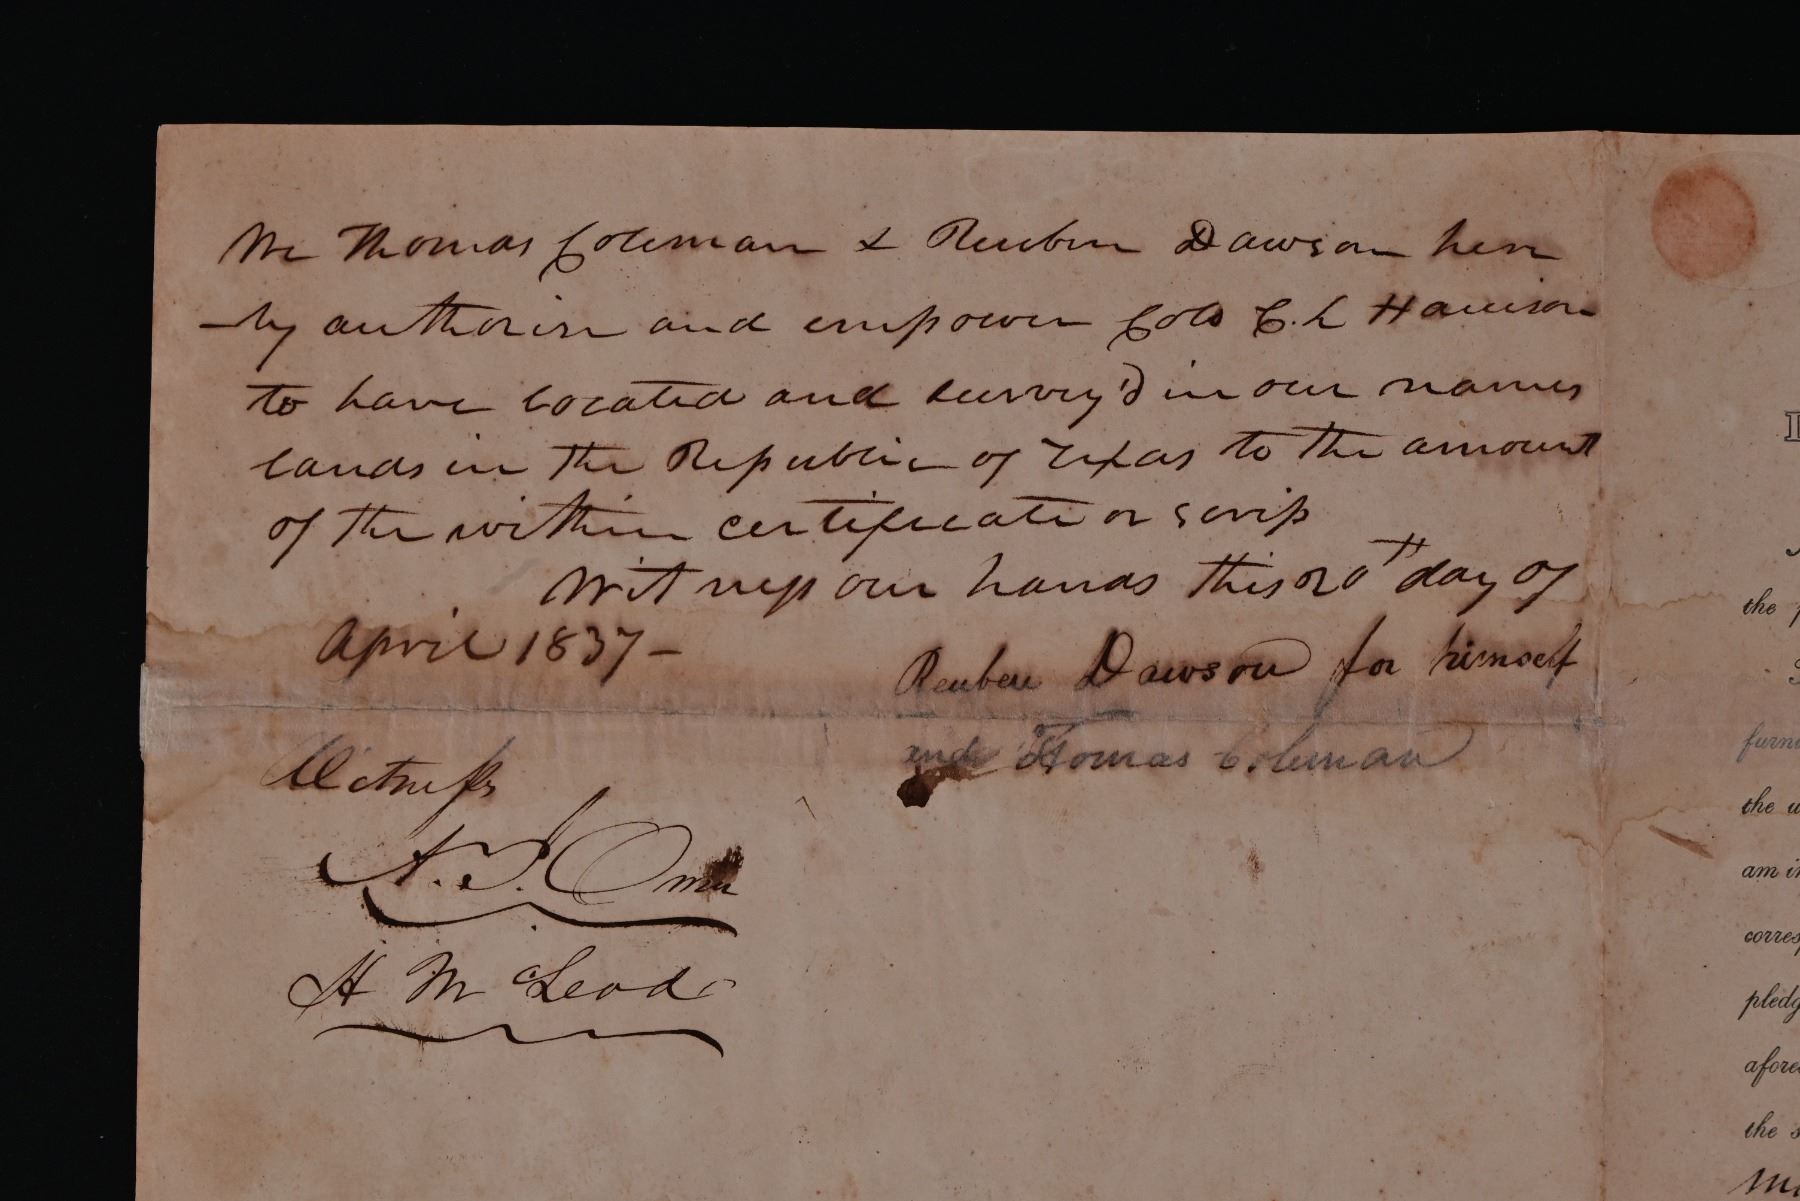 We Thomas Coleman & Reuben Dawson here
-by authorise and empower Colo C. L Harrison
to have located and survey'd in our names
lands in the Republic of Texas to the amount
of the within certificate or scrip
Witness our hands this 20th day of
April 1837 -
Reuben Dawson for himself
and Thomas Coleman
Witness
H McLeod
the
furni
the u
am in
corres
pledg
afore
the s